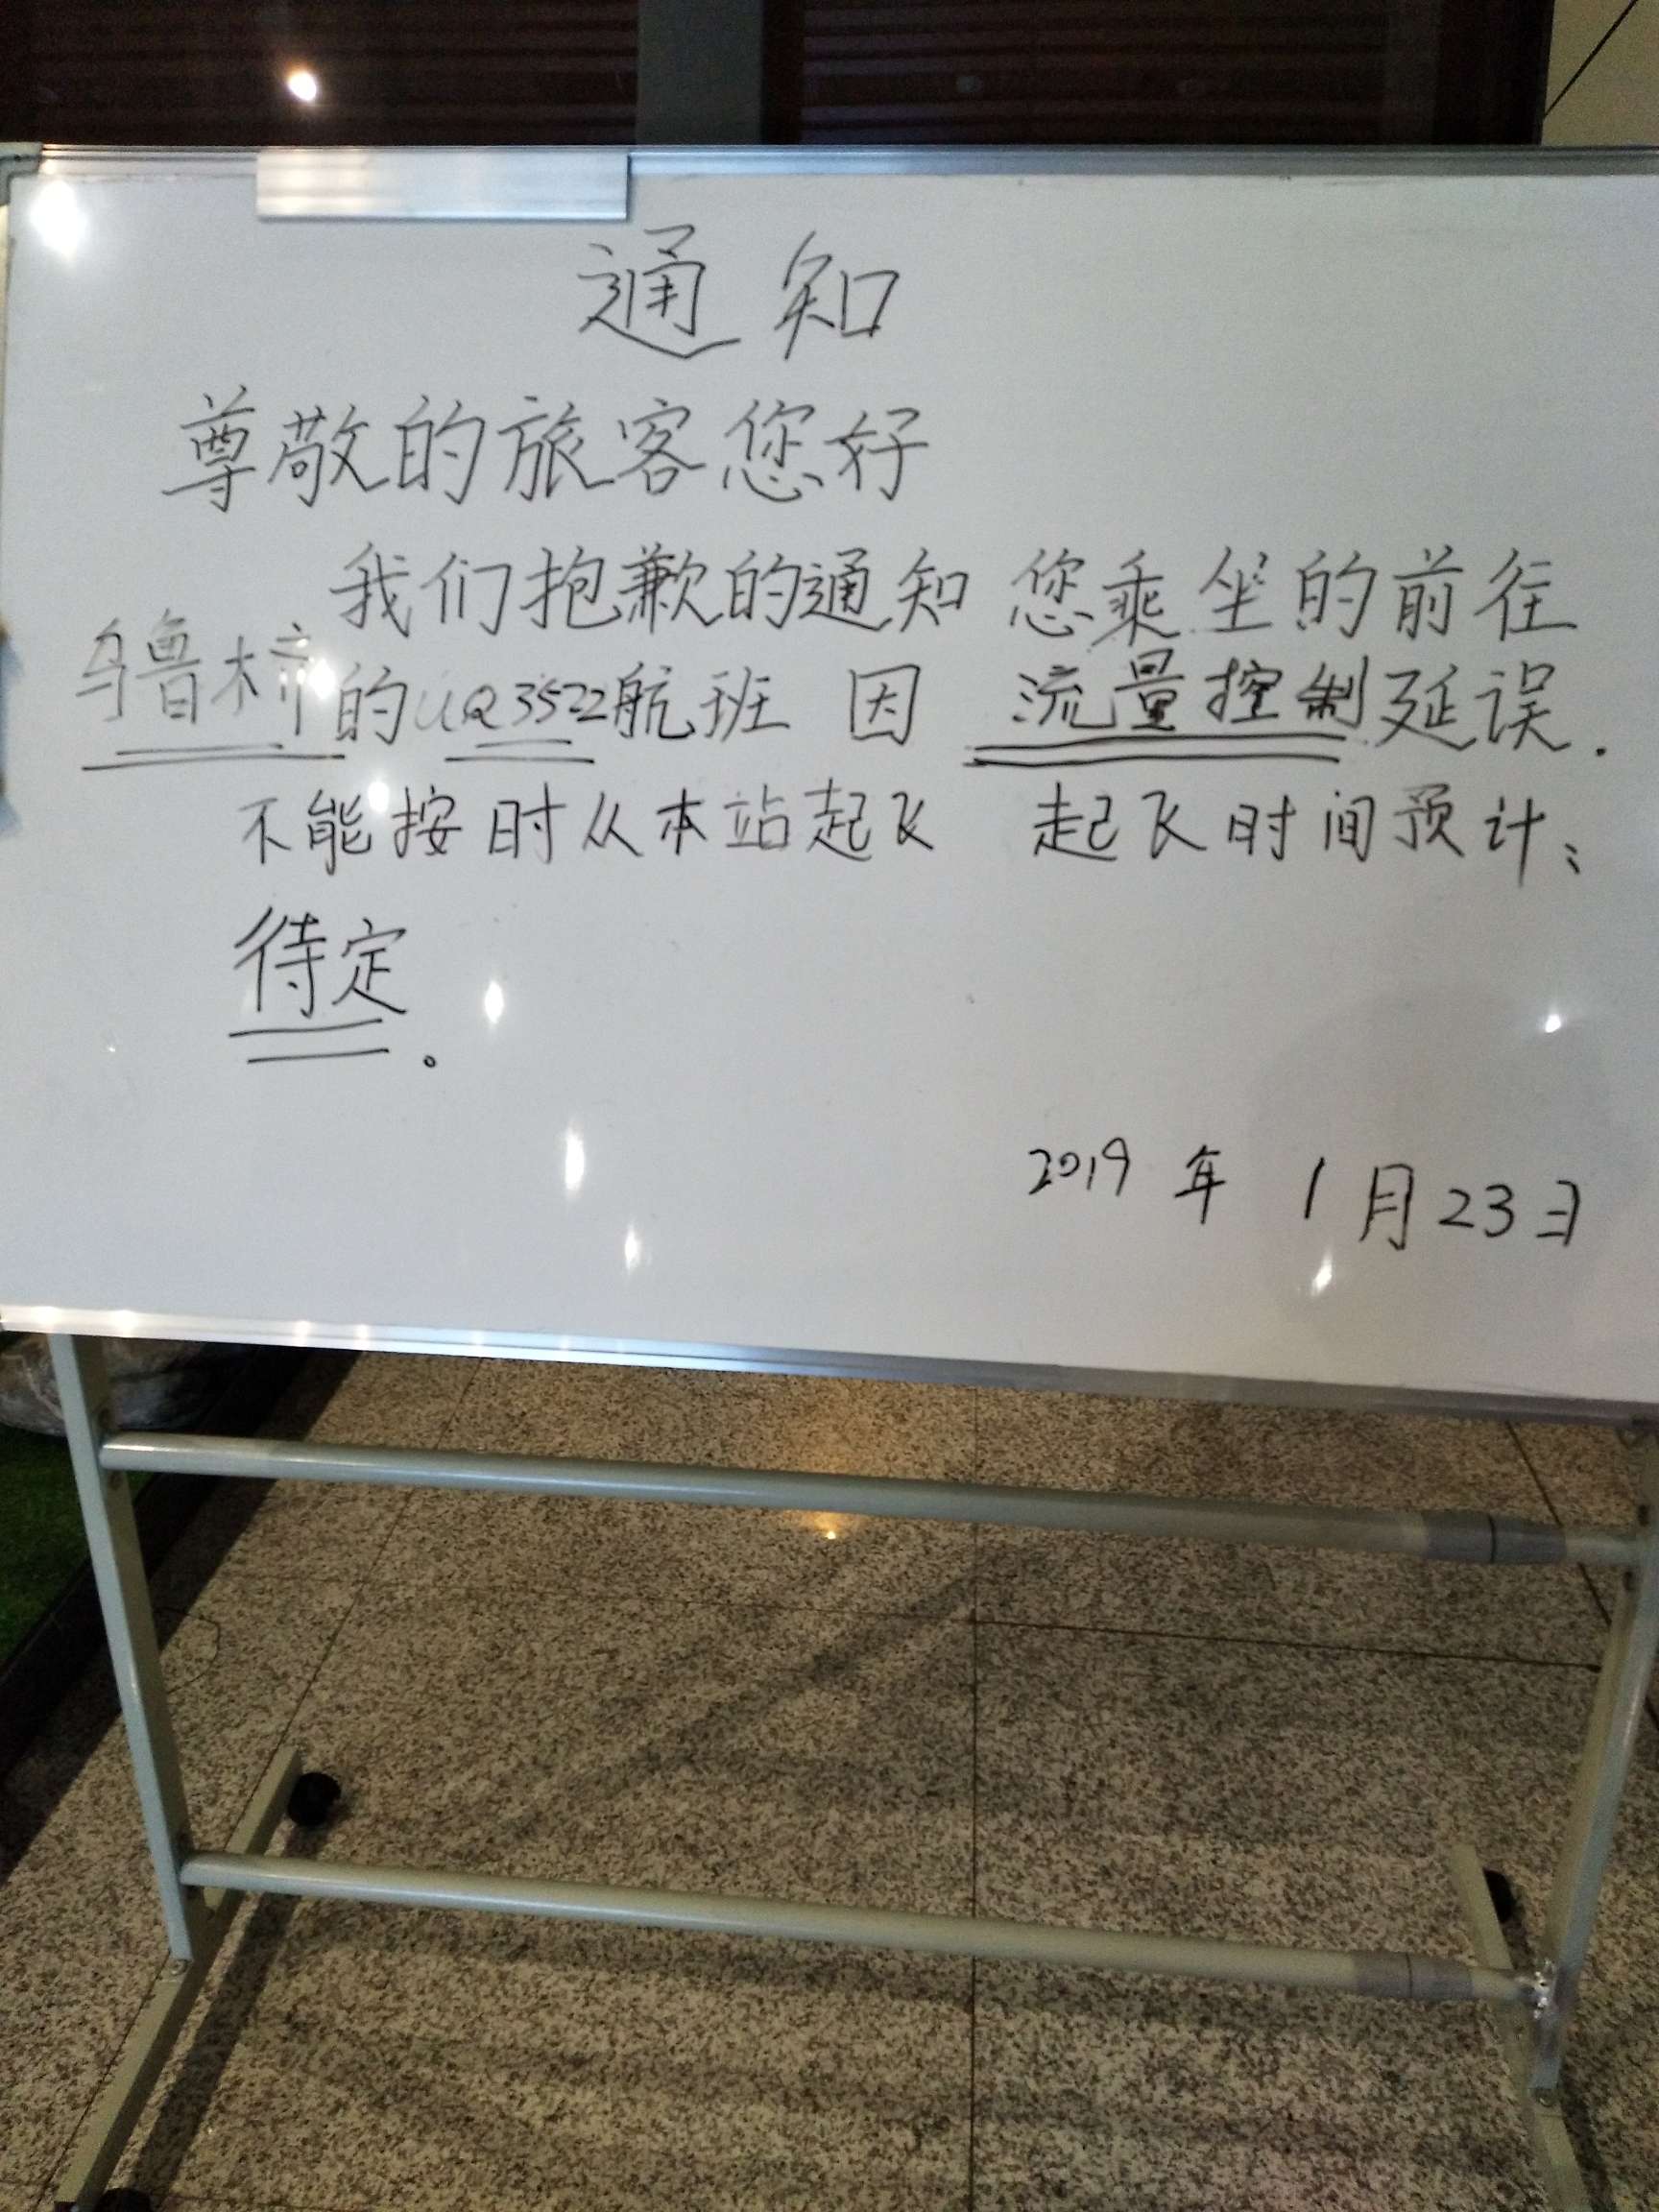 通知
尊敬的旅客您好
我们抱歉的通知 您乘坐的前往
乌鲁木齐的UQ3522航班 因 流量控制延误.
不能按时从本站起飞 起飞时间预计:
待定。
2019年 1月23日